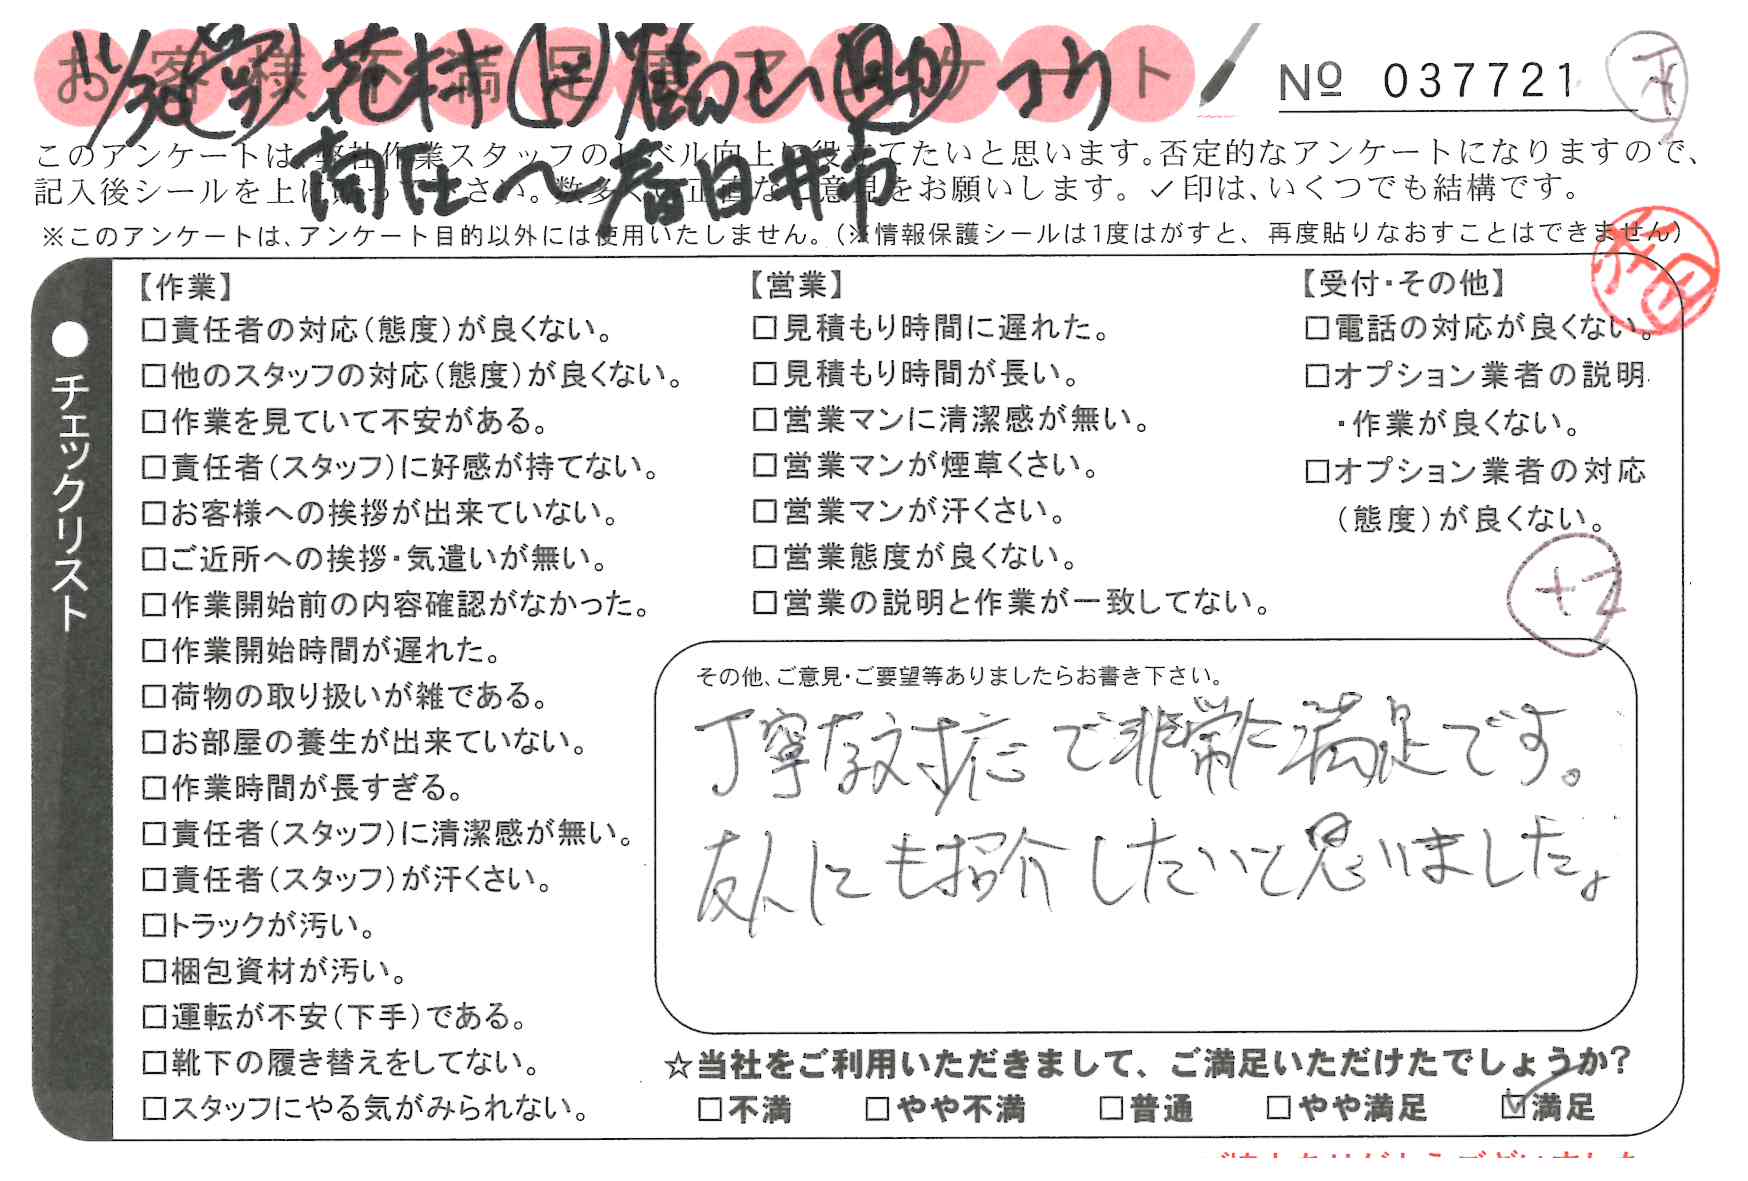 お客様不満足度アンケート
№ 037721
このアンケートは、弊社作業スタッフのレベル向上に役立てたいと思います。否定的なアンケートになりますので、
記入後シールを上に貼ってください。数多くの正直なご意見をお願いします。✓印は、いくつでも結構です。
※このアンケートは、アンケート目的以外には使用いたしません。(※情報保護シールは1度はがすと、再度貼りなおすことはできません)
春日井市
●チェックリスト
【作業】
□責任者の対応(態度)が良くない。
□他のスタッフの対応(態度)が良くない。
□作業を見ていて不安がある。
□責任者(スタッフ)に好感が持てない。
□お客様への挨拶が出来ていない。
□ご近所への挨拶・気遣いが無い。
□作業開始前の内容確認がなかった。
□作業開始時間が遅れた。
□荷物の取り扱いが雑である。
□お部屋の養生が出来ていない。
□作業時間が長すぎる。
□責任者(スタッフ)に清潔感が無い。
□責任者(スタッフ)が汗くさい。
□トラックが汚い。
□梱包資材が汚い。
□運転が不安(下手)である。
□靴下の履き替えをしてない。
□スタッフにやる気がみられない。
【営業】
□見積もり時間に遅れた。
□見積もり時間が長い。
□営業マンに清潔感が無い。
□営業マンが煙草くさい。
□営業マンが汗くさい。
□営業態度が良くない。
□営業の説明と作業が一致してない。
【受付・その他】
□電話の対応が良くない。
□オプション業者の説明
・作業が良くない。
□オプション業者の対応
(態度)が良くない。
その他、ご意見・ご要望等ありましたらお書き下さい。
丁寧な対応で非常に満足です。
友人にも紹介したいと思いました。
☆当社をご利用いただきまして、ご満足いただけたでしょうか?
□不満 □やや不満 □普通 □やや満足 ☑満足